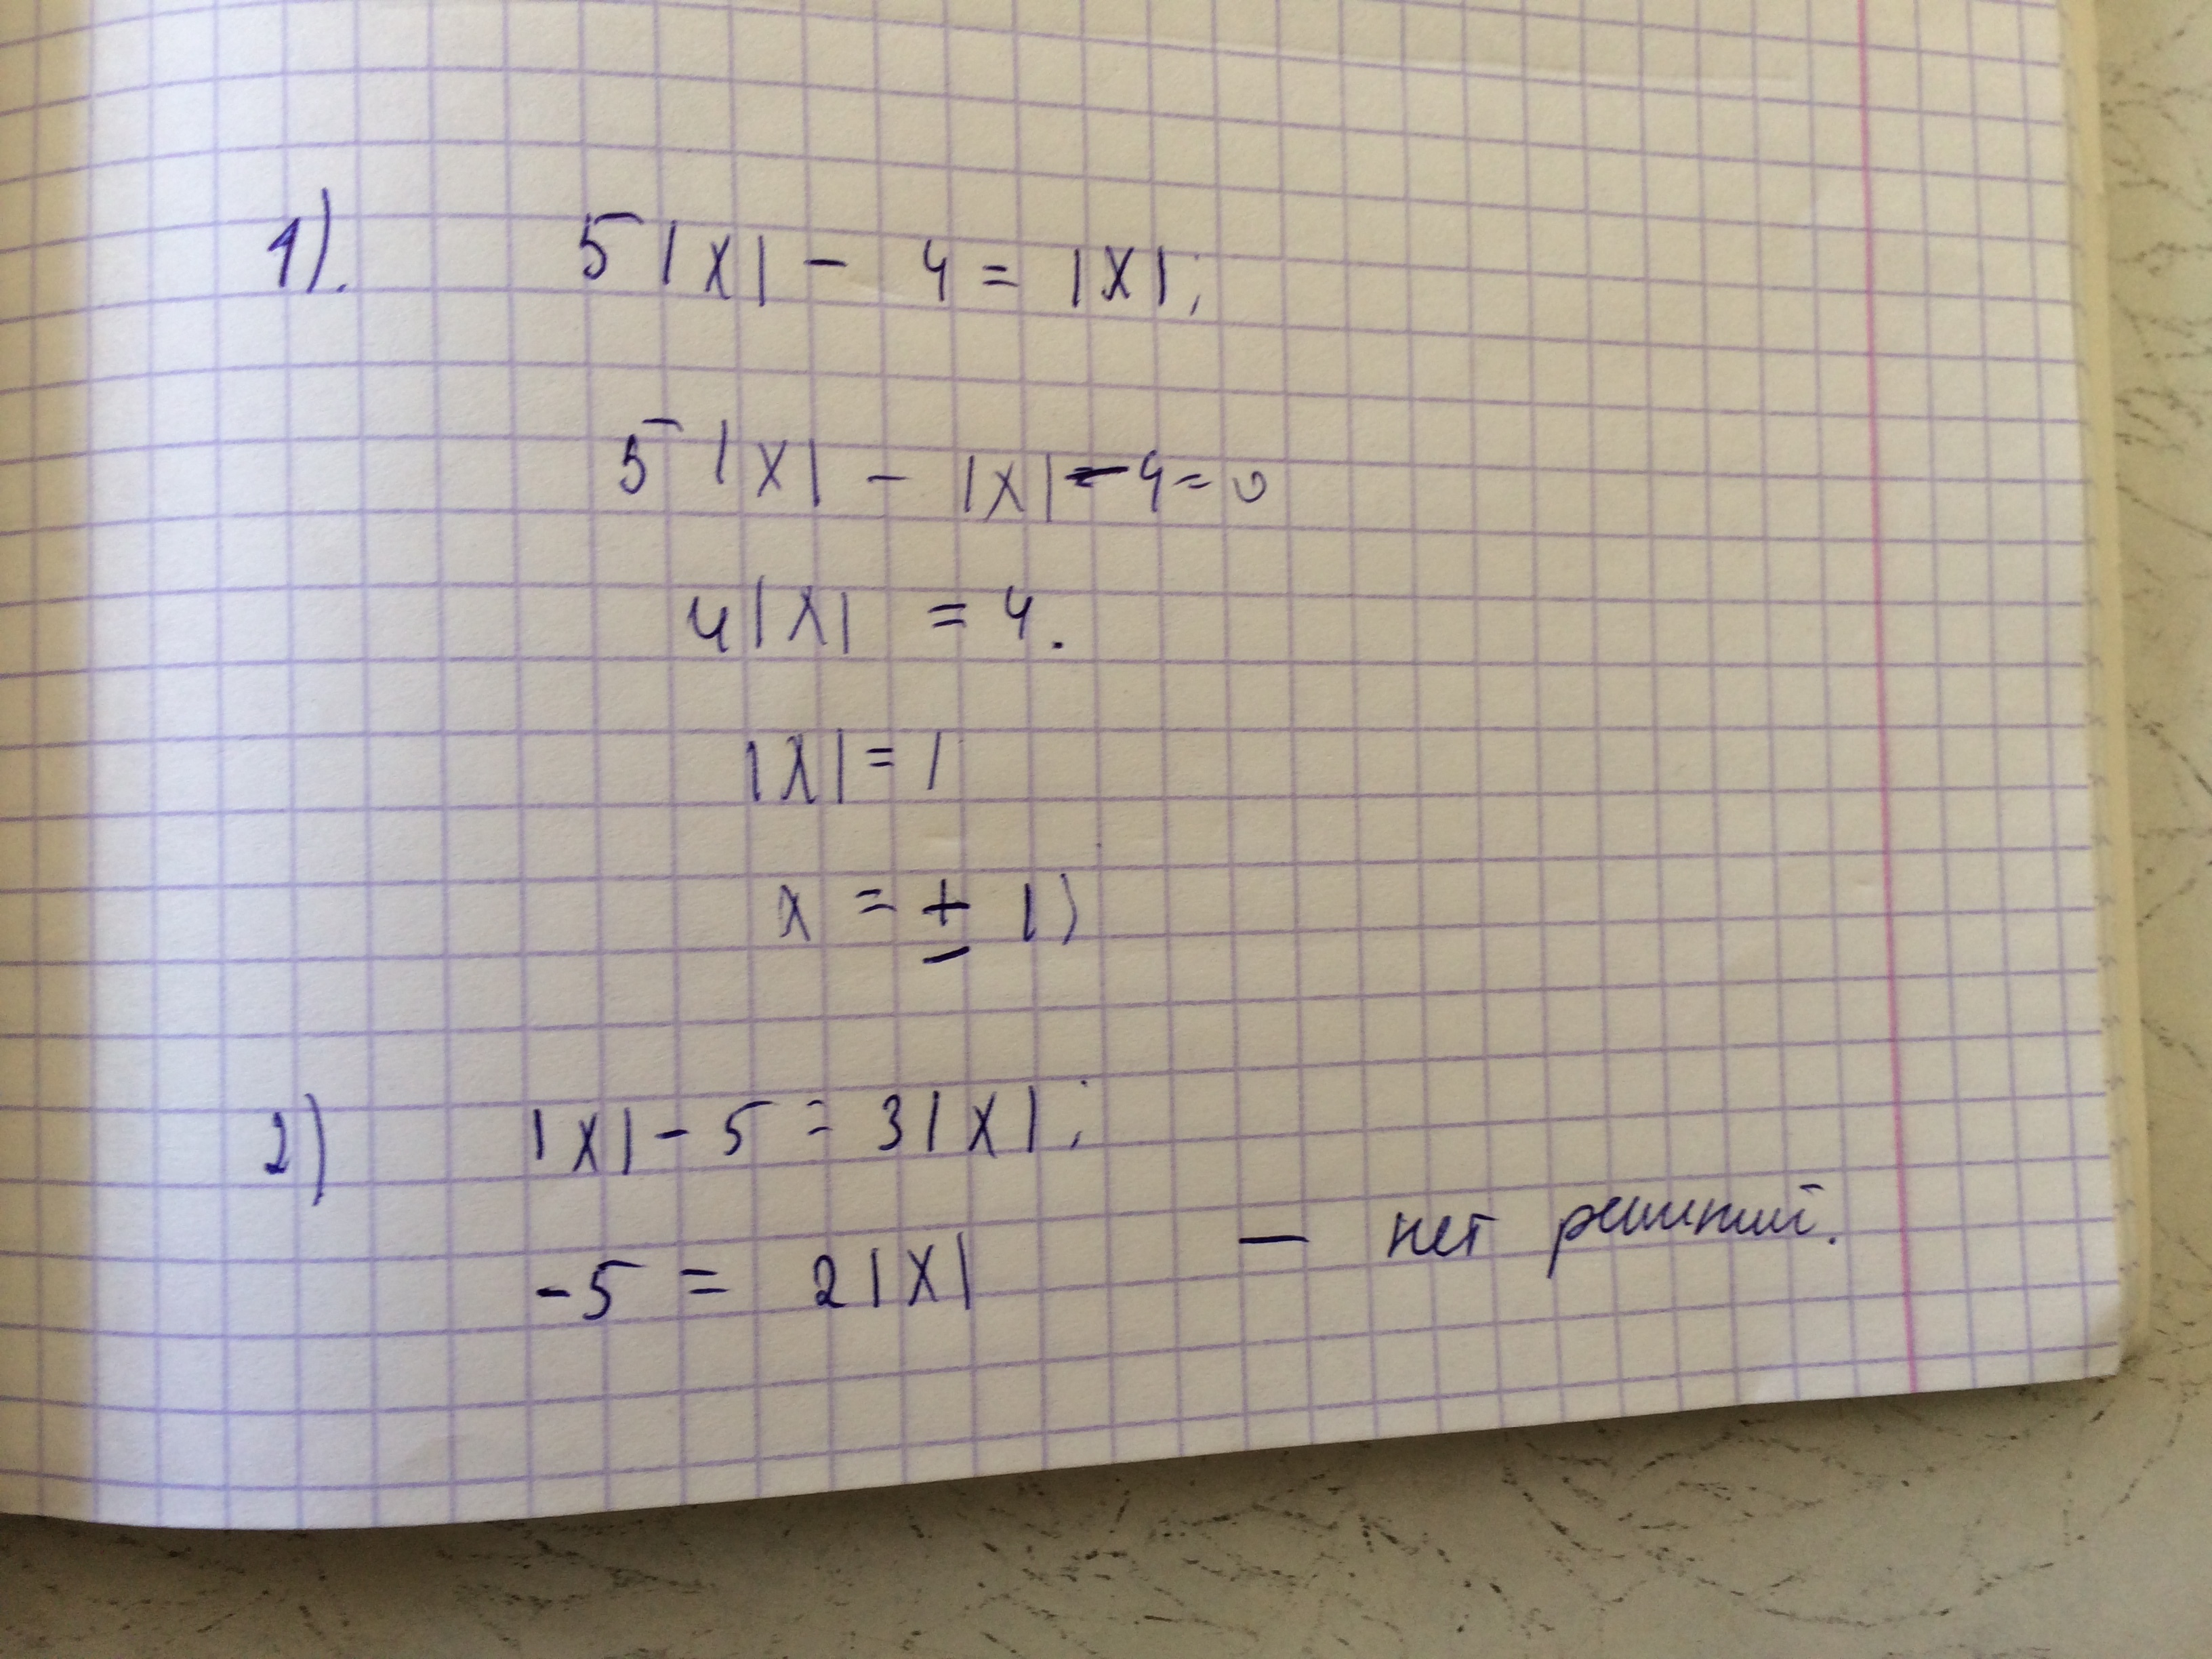 1). 5|x| - 4 = |x|;
5|x| - |x| - 4 = 0
4|x| = 4.
|x| = 1
x = ± 1)
2) |x| - 5 = 3|x|;
-5 = 2|x| — нет решений.